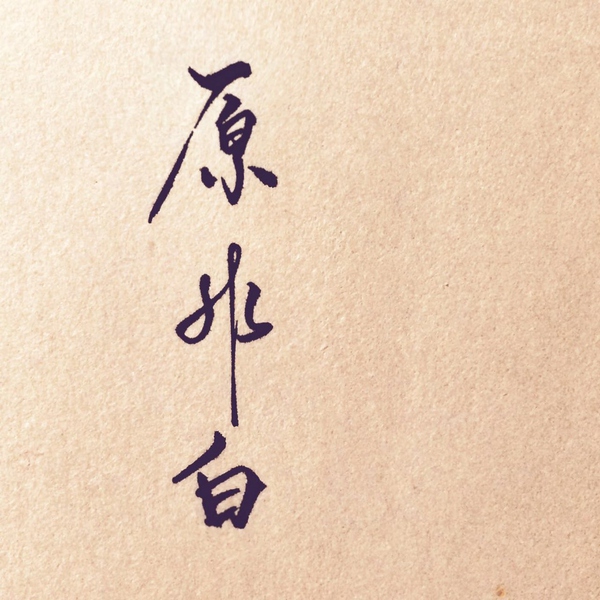 原非白